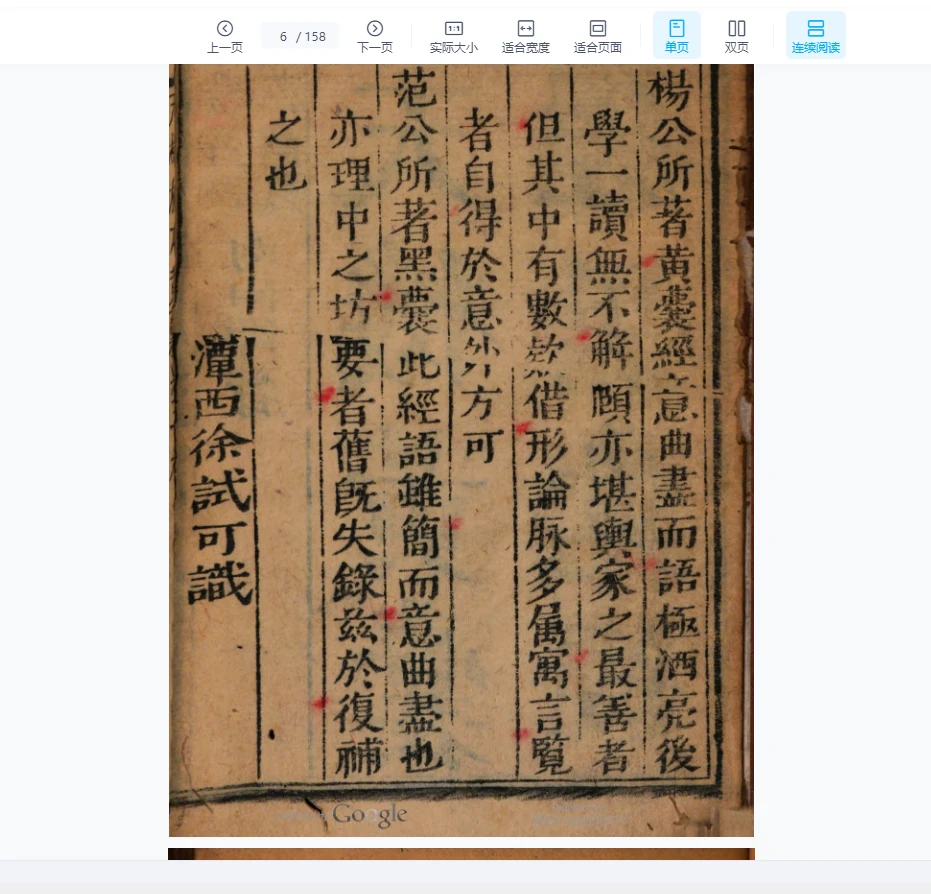 上一页
6 / 158
下一页
1:1
实际大小
适合宽度
适合页面
单页
双页
连续阅读
楊公所著黃囊經意曲盡而語極洒亮後
學一讀無不解頤亦堪輿家之最善者
但其中有數款借形論脉多属寓言覽
者自得於意外方可
范公所著黑囊此經語雖簡而意曲盡也
亦理中之坊要者舊旣失錄茲於復補
之也
潭西徐試可識
Google